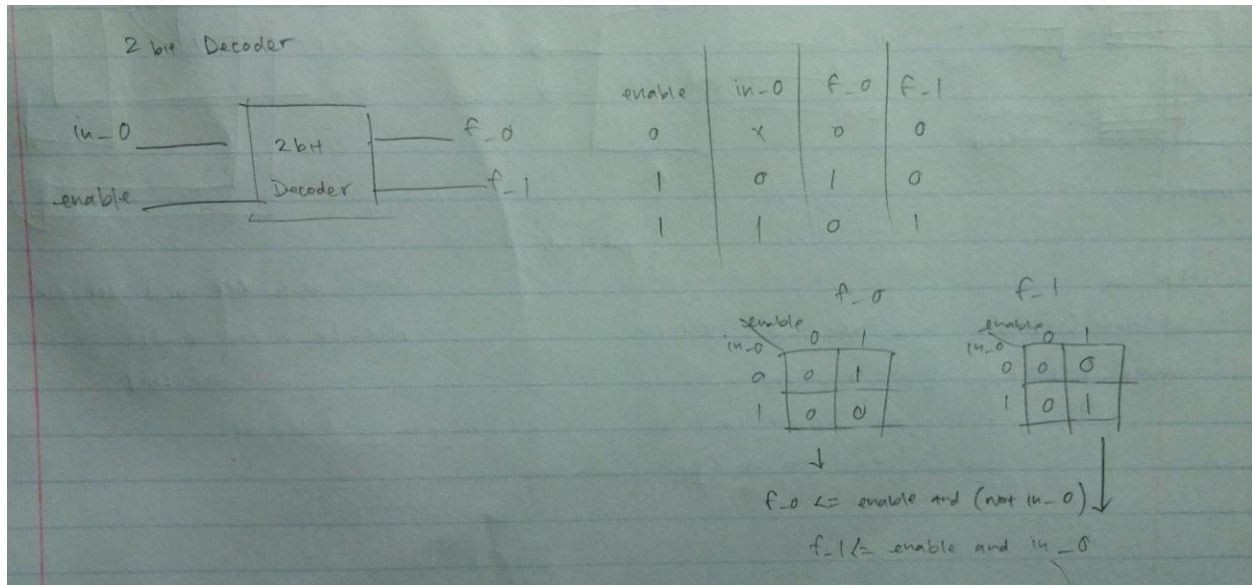 2 bit Decoder
in_0
enable
2 bit
Decoder
f_0
f_1
enable in_0 f_0 f_1
0 x 0 0
1 0 1 0
1 1 0 1
f_0
enable 0 1
in_0
0 0 1
1 0 0
f_1
enable 0 1
in_0
0 0 0
1 0 1
f_0 <= enable and (not in_0)
f_1 <= enable and in_0